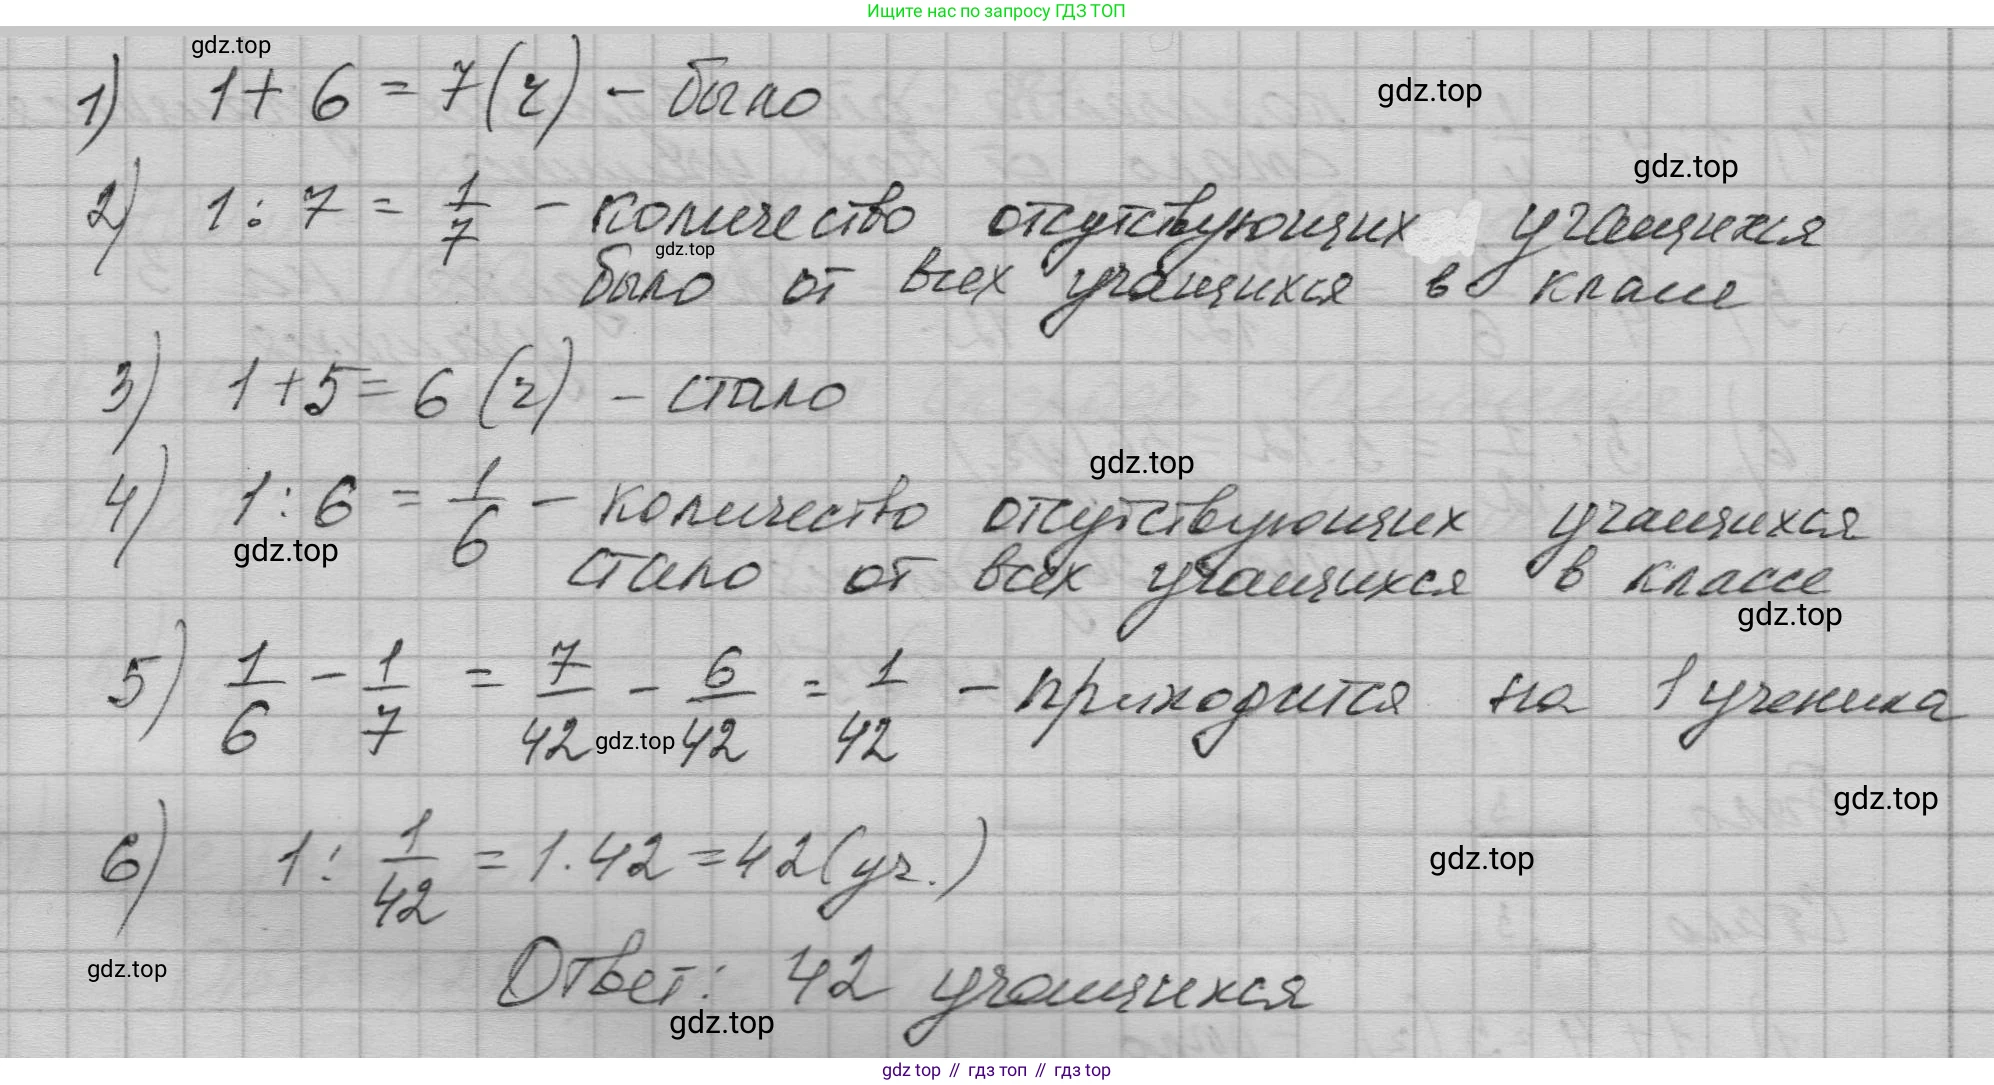 Ищите нас по запросу ГДЗ ТОП
gdz.top
1) 1 + 6 = 7 (ч) – было
gdz.top
gdz.top
2) 1 : 7 = 1/7 – количество отсутствующих учащихся
gdz.top
было от всех учащихся в классе
3) 1 + 5 = 6 (ч) – стало
gdz.top
4) 1 : 6 = 1/6 – количество отсутствующих учащихся
gdz.top
стало от всех учащихся в классе
gdz.top
5) 1/6 – 1/7 = 7/42 – 6/42 = 1/42 – приходится на 1 ученика
gdz.top
gdz.top
6) 1 : 1/42 = 1 · 42 = 42 (уч.)
gdz.top
gdz.top
Ответ: 42 учащихся
gdz.top
gdz top // гдз топ // гдз top